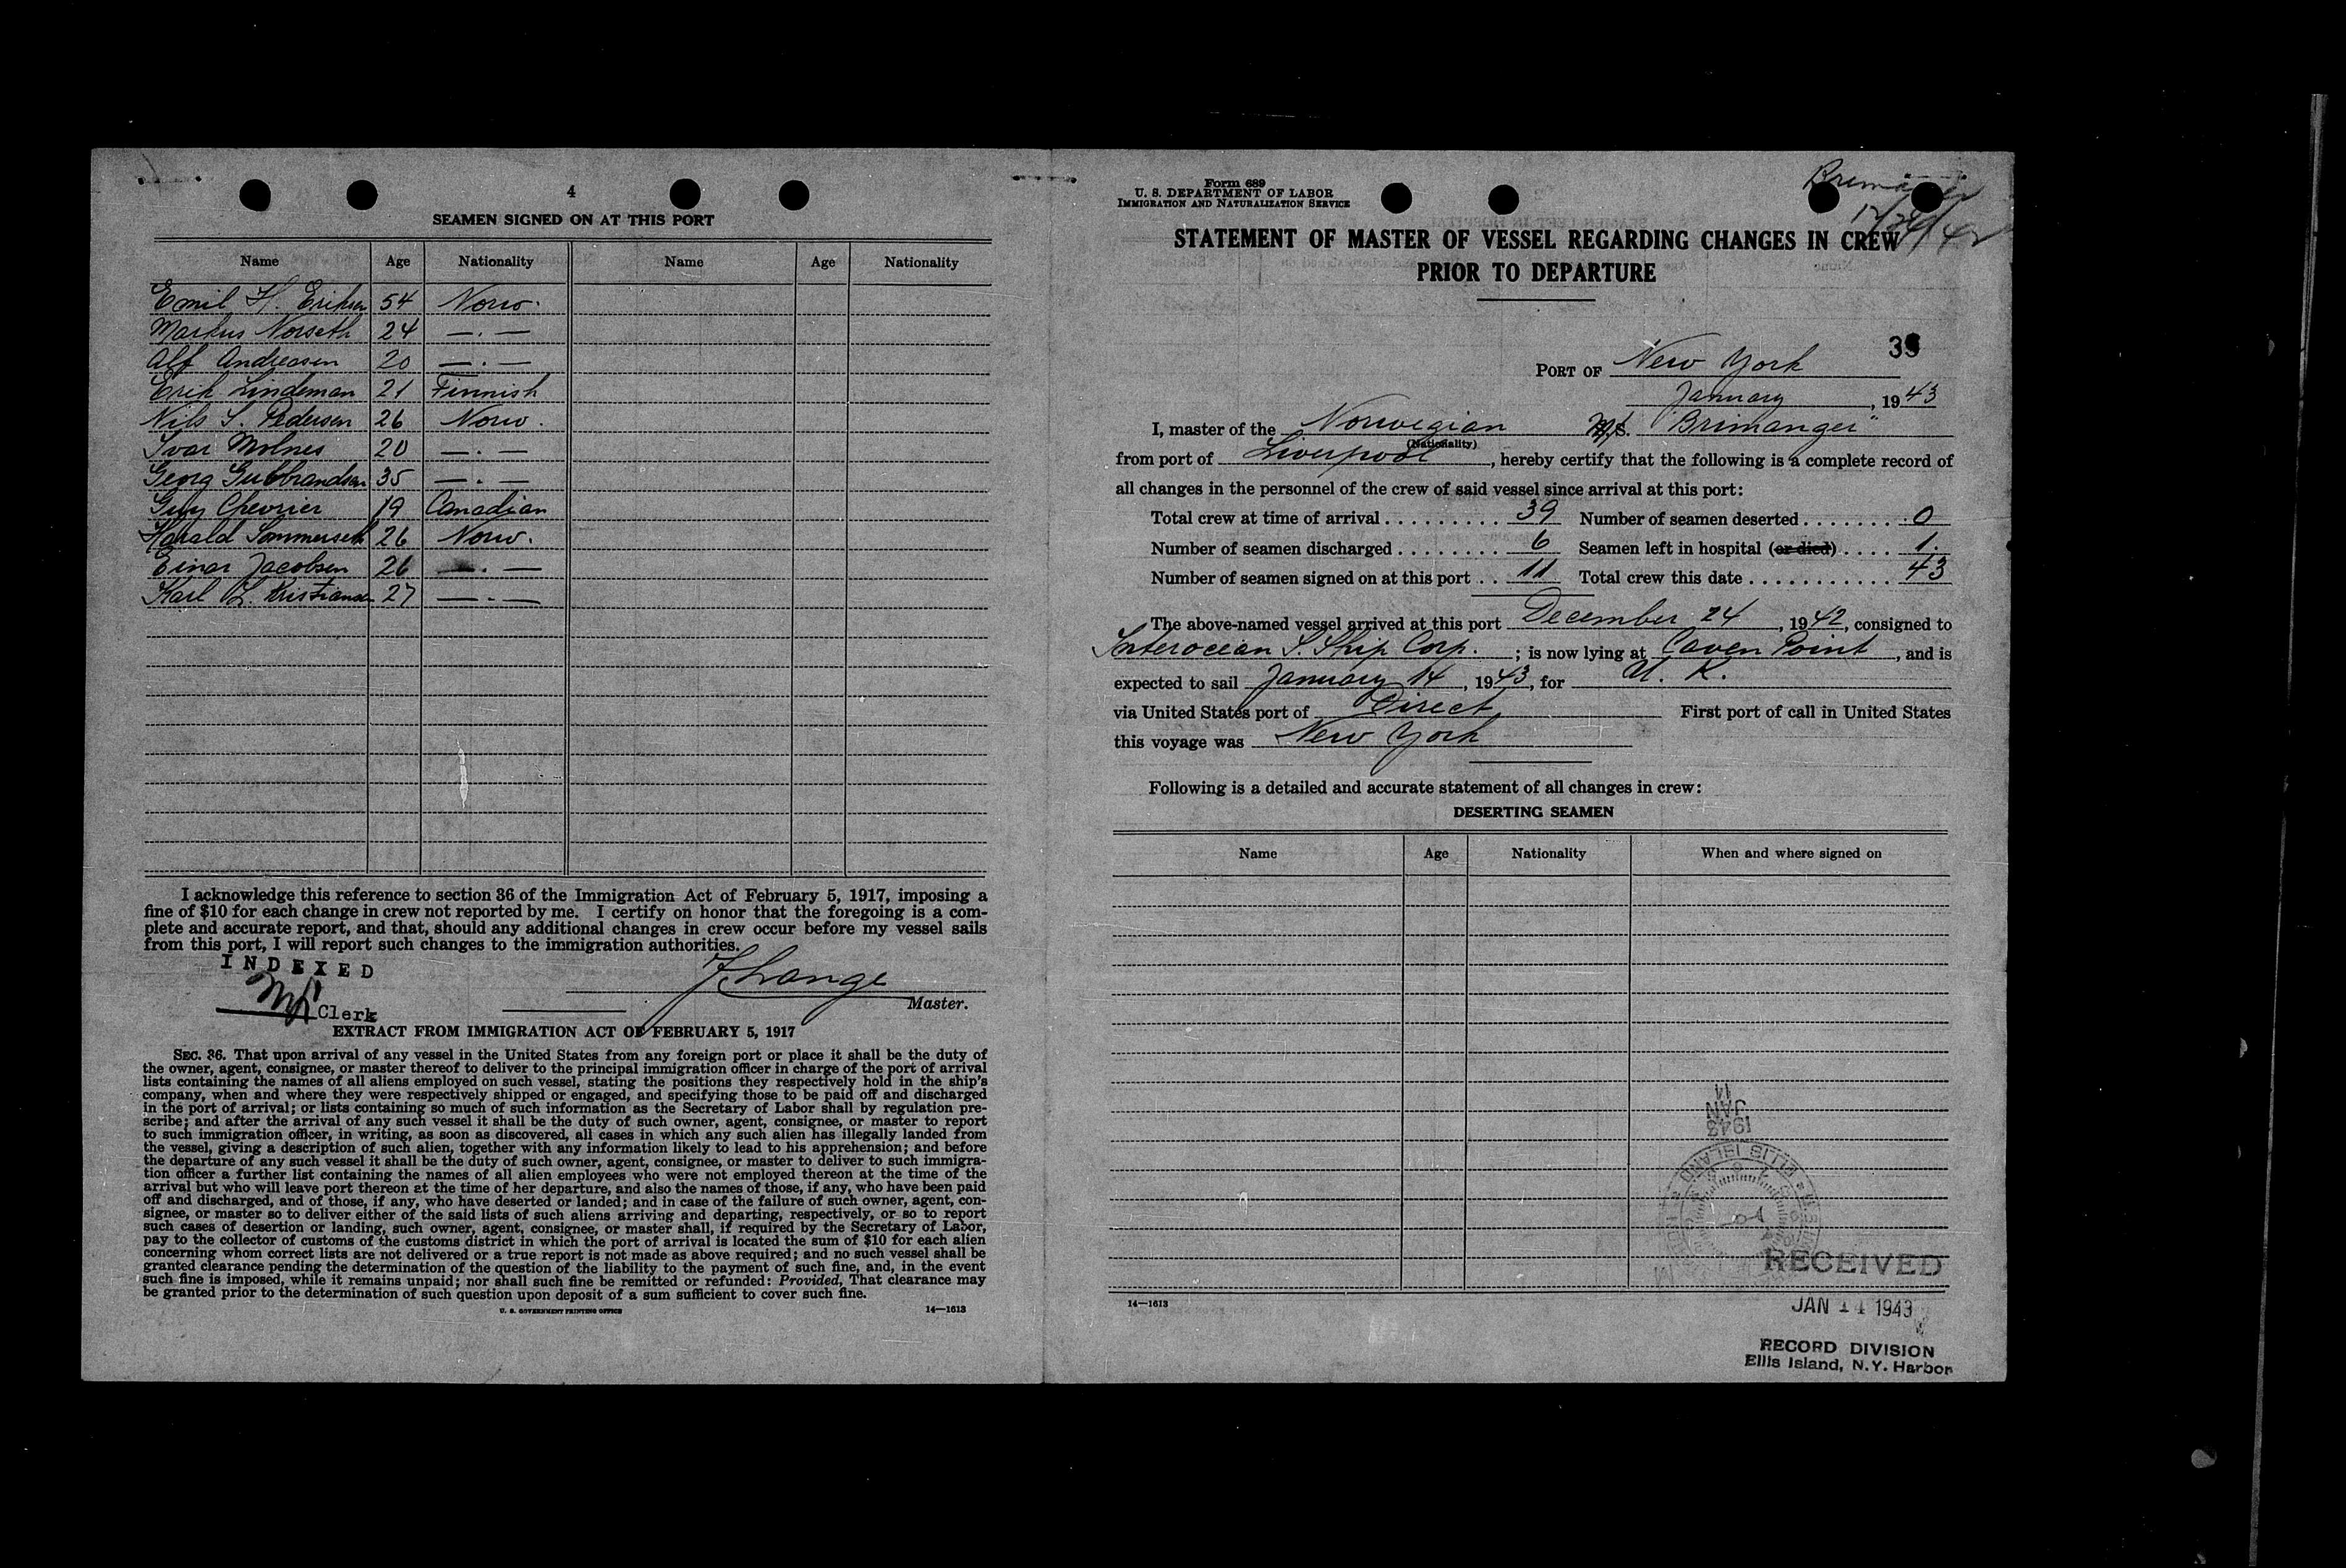 4
SEAMEN SIGNED ON AT THIS PORT
Name Age Nationality Name Age Nationality
Emil H. Eriksen 54 Norw.
Markus Norseth 24 —.—
Alf Andreasen 20 —.—
Erik Lindeman 21 Finnish
Nils S. Pedersen 26 Norw.
Ivar Molnes 20 —.—
Georg Gulbrandsen 35 —.—
Guy Chevrier 19 Canadian
Harald Sommerseth 26 Norw.
Einar Jacobsen 26 —.—
Karl L. Kristiansen 27 —.—
I acknowledge this reference to section 36 of the Immigration Act of February 5, 1917, imposing a
fine of $10 for each change in crew not reported by me. I certify on honor that the foregoing is a com-
plete and accurate report, and that, should any additional changes in crew occur before my vessel sails
from this port, I will report such changes to the immigration authorities.
INDEXED
Clerk
F. Lange
Master.
EXTRACT FROM IMMIGRATION ACT OF FEBRUARY 5, 1917
SEC. 36. That upon arrival of any vessel in the United States from any foreign port or place it shall be the duty of
the owner, agent, consignee, or master thereof to deliver to the principal immigration officer in charge of the port of arrival
lists containing the names of all aliens employed on such vessel, stating the positions they respectively hold in the ship's
company, when and where they were respectively shipped or engaged, and specifying those to be paid off and discharged
in the port of arrival; or lists containing so much of such information as the Secretary of Labor shall by regulation pre-
scribe; and after the arrival of any such vessel it shall be the duty of such owner, agent, consignee, or master to report
to such immigration officer, in writing, as soon as discovered, all cases in which any such alien has illegally landed from
the vessel, giving a description of such alien, together with any information likely to lead to his apprehension; and before
the departure of any such vessel it shall be the duty of such owner, agent, consignee, or master to deliver to such immigra-
tion officer a further list containing the names of all alien employees who were not employed thereon at the time of the
arrival but who will leave port thereon at the time of her departure, and also the names of those, if any, who have been paid
off and discharged, and of those, if any, who have deserted or landed; and in case of the failure of such owner, agent, con-
signee, or master so to deliver either of the said lists of such aliens arriving and departing, respectively, or so to report
such cases of desertion or landing, such owner, agent, consignee, or master shall, if required by the Secretary of Labor,
pay to the collector of customs of the customs district in which the port of arrival is located the sum of $10 for each alien
concerning whom correct lists are not delivered or a true report is not made as above required; and no such vessel shall be
granted clearance pending the determination of the question of the liability to the payment of such fine, and, in the event
such fine is imposed, while it remains unpaid; nor shall such fine be remitted or refunded: Provided, That clearance may
be granted prior to the determination of such question upon deposit of a sum sufficient to cover such fine.
U. S. GOVERNMENT PRINTING OFFICE 14—1613
Form 689
U. S. DEPARTMENT OF LABOR
IMMIGRATION AND NATURALIZATION SERVICE
12/24/42
STATEMENT OF MASTER OF VESSEL REGARDING CHANGES IN CREW
PRIOR TO DEPARTURE
PORT OF New York
January, 1943
I, master of the Norwegian M/S. "Brimanger"
(Nationality)
from port of Liverpool, hereby certify that the following is a complete record of
all changes in the personnel of the crew of said vessel since arrival at this port:
Total crew at time of arrival 39 Number of seamen deserted 0
Number of seamen discharged 6 Seamen left in hospital (or died) 1.
Number of seamen signed on at this port 11 Total crew this date 43
The above-named vessel arrived at this port December 24, 1942, consigned to
Interocean S. Ship Corp.; is now lying at Caven Point, and is
expected to sail January 14, 1943, for U. K.
via United States port of Direct First port of call in United States
this voyage was New York
Following is a detailed and accurate statement of all changes in crew:
DESERTING SEAMEN
Name Age Nationality When and where signed on
14
JAN
1943
ELLIS ISLAND
RECEIVED
14—1613
JAN 14 1943
RECORD DIVISION
Ellis Island, N.Y. Harbor